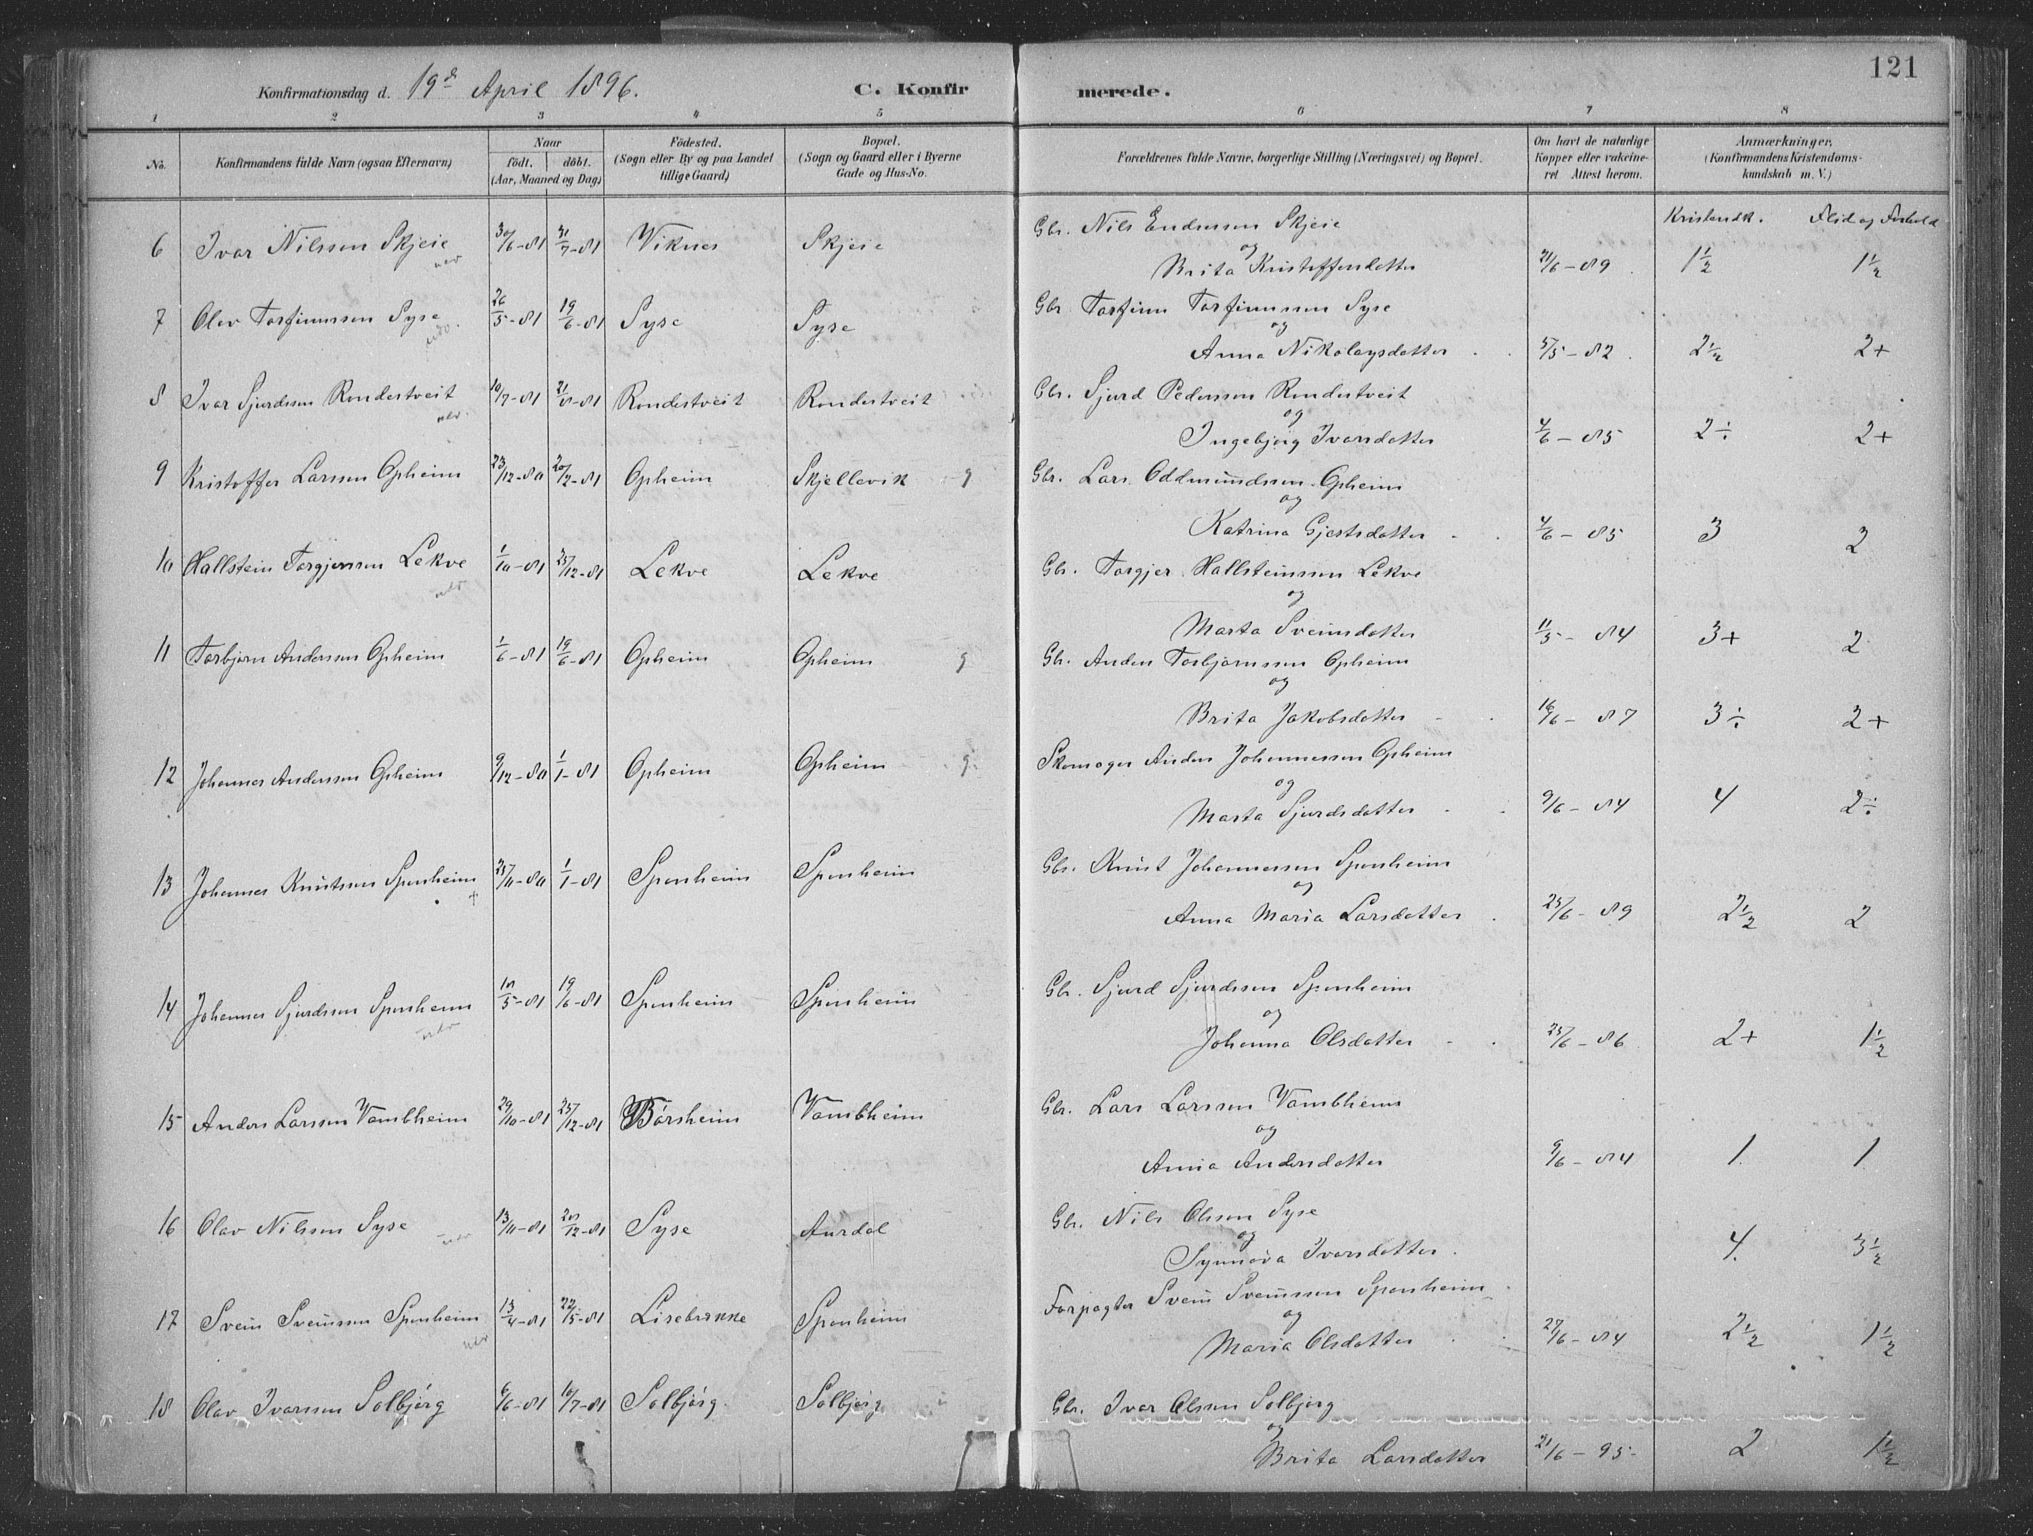 121
Konfirmationsdag d. 19d April 1896. C. Konfirmerede.
1 2 3 4 5 6 7 8
No. Konfirmandens fulde Navn (ogsaa Efternavn) Naar födt. döbt. (Aar, Maaned og Dag) Födested. (Sogn eller By og paa Landet tillige Gaard) Bopæl. (Sogn og Gaard eller i Byerne Gade og Hus-No. Forældrenes fulde Navne, borgerlige Stilling (Næringsvei) og Bopæl. Om havt de naturlige Kopper eller vakcineret Attest herom. Anmærkninger. (Konfirmandens Kristendomskundskab m. V.)
Kristendk. Flid og Forhold
6 Ivar Nilssen Skjeie 30/6-81 31/7-81 Viknes Skjeie Gbr. Nils Endressen Skjeie
og
Brita Kristoffersdatter 21/6-89 1½ 1½
7 Olav Torfinnssen Syse 26/5-81 19/6-81 Syse Syse Gbr Torfinn Torfinnssen Syse
og
Anna Nikolaysdatter 5/5-82 2½ 2+
8 Ivar Sjurdssen Rondestveit 10/7-81 21/8-81 Rondestveit Rondestveit Gbr. Sjurd Pederssen Rondestveit
og
Ingebjörg Ivarsdatter 4/6-85 2÷ 2+
9 Kristoffer Larssen Opheim 23/12-80 20/2-81 Opheim Skjellevik g Gbr. Lars Oddmundssen Opheim
og
Katrina Gjestsdatter 4/6-85 3 2
10 Hallstein Torgjerssen Lekve 1/10-81 25/12-81 Lekve Lekve Gbr. Torgjer Hallsteinssen Lekve
og
Marta Sveinsdatter 11/5-84 3+ 2
11 Torbjörn Anderssen Opheim 1/6-81 19/6-81 Opheim Opheim g Gbr. Anders Torbjörnssen Opheim
og
Brita Jakobsdatter 16/6-87 3÷ 2+
12 Johannes Anderssen Opheim 9/12-80 1/1-81 Opheim Opheim g. Skomager Anders Johannessen Opheim
og
Marta Sjurdsdatter 9/6-84 4 2÷
13 Johannes Knutssen Sponheim + 25/11-80 1/1-81 Sponheim Sponheim Gbr. Knut Johannessen Sponheim
og
Anna Maria Larsdatter 25/6-89 2½ 2
14 Johannes Sjurdssen Sponheim 10/5-81 19/6-81 Sponheim Sponheim Gbr. Sjurd Sjurdssen Sponheim
og
Johanna Olsdatter 25/6-86 2+ 1½
15 Anders Larssen Vambheim 29/10-81 25/12-81 Börsheim Vambheim Gbr. Lars Larssen Vambheim
og
Anna Andersdatter 9/6-84 1. 1
16 Olav Nilssen Syse 13/11-81 Syse Aurdal Gbr. Nils Olssen Syse
og
Synnöva Ivarsdatter. 4. 3½
17 Svein Sveinssen Sponheim 13/4-81 22/5-81 Lisebrekke Sponheim Forpagter Svein Sveinssen Sponheim
og
Maria Olsdatter 27/6-84 2½ 1½
18 Olav Ivarssen Solbjörg 6/6-81 10/7-81 Solbjörg Solbjörg Gbr. Ivar Olssen Solbjörg
og
Brita Larsdatter 21/6-95 2 1½